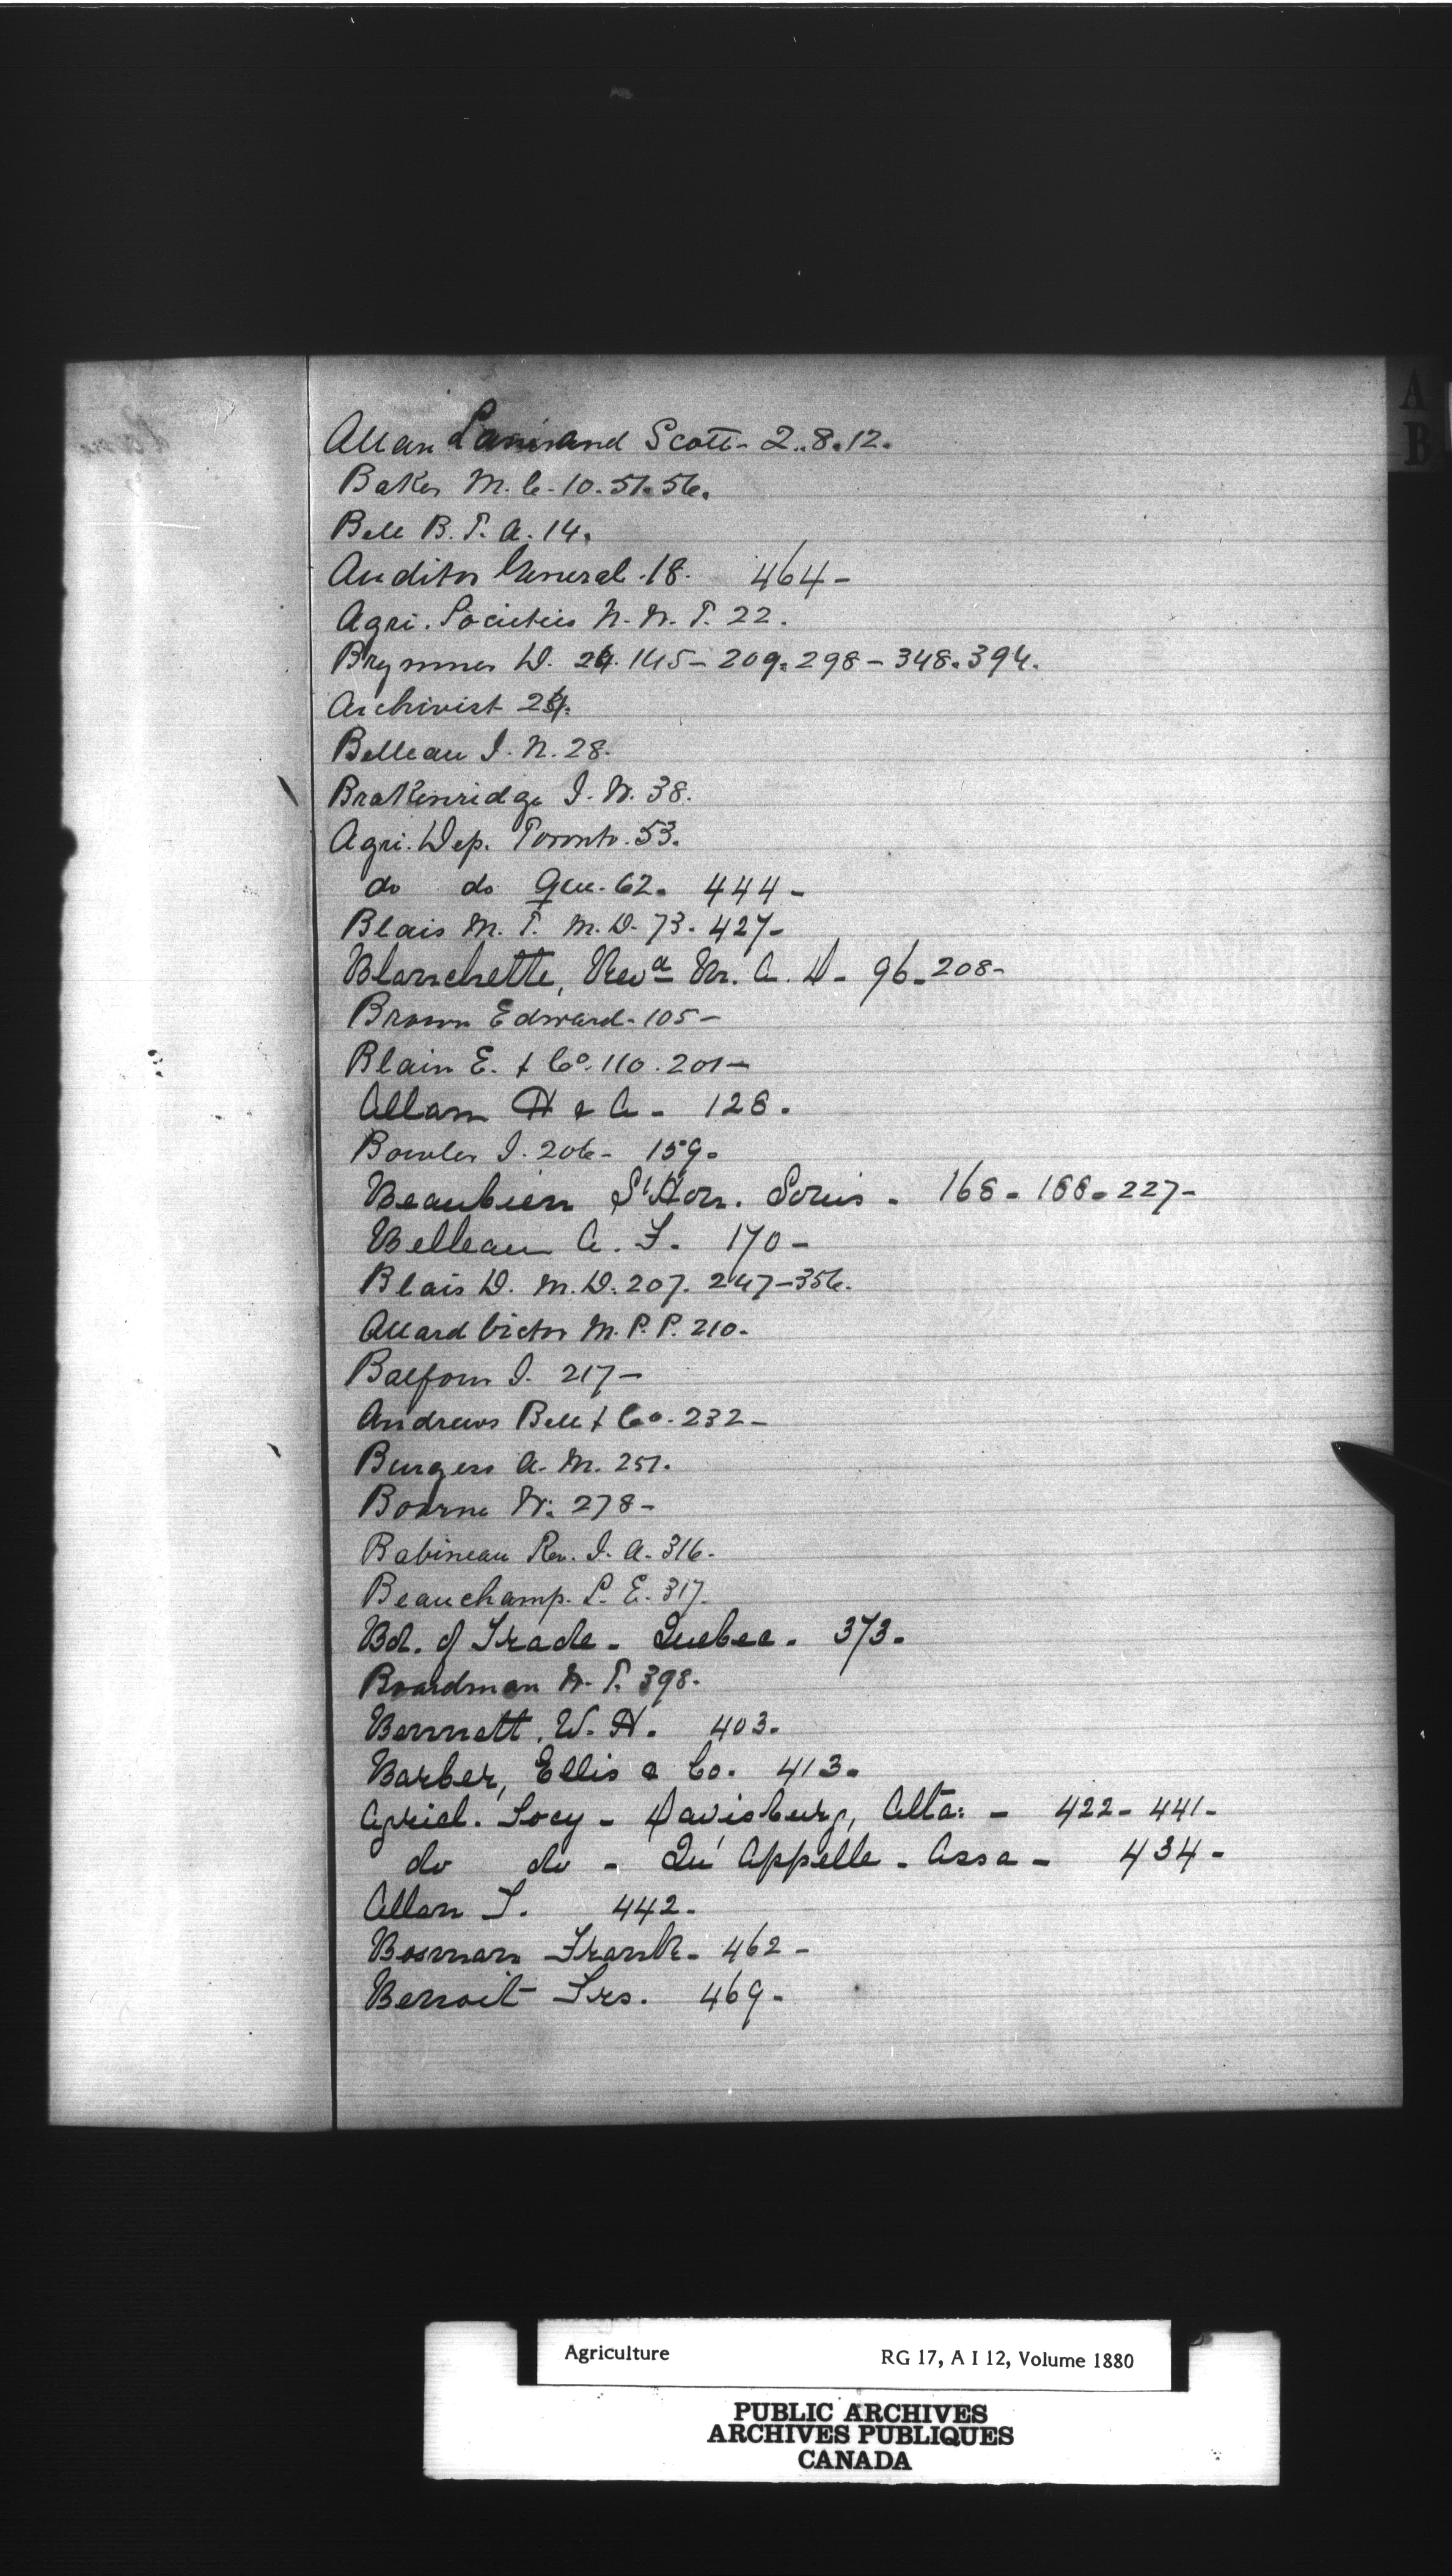 A
B
Allan Lamirand Scott - 2..8.12.
Baker M. C - 10. 51. 56.
Bell B. T. A. 14.
Auditor General - 18. 464 -
Agri. Societies N. W. T. 22.
Brymner D. 24. 145 - 209. 298 - 348. 394.
Archivist 24.
Belleau I. N. 28.
Brakenridge I. W. 38.
Agri. Dep. Toronto. 53.
do do Que. 62. 444 -
Blais M. T. M. D. 73. 427 -
Blanchette, Revd Mr. A. D - 96 - 208 -
Brown Edward - 105 -
Blain E. & Co. 110. 201 -
Allan H & A - 128.
Bowler I. 206 - 159.
Beaubien Hon. Louis - 168 - 188 - 227 -
Belleau A. F. 170 -
Blais D. M. D. 207. 247 - 356.
Allard Victor M. P. P. 210.
Balfour I. 217 -
Andrews Bell & Co. 232 -
Burgess A. M. 251.
Bourne W. 278 -
Babineau Rev. I. A. 316.
Beauchamp. L. E. 317.
Bd. of Trade - Quebec. 373.
Boardman W. T. 398.
Bennett. W. H. 403.
Barber, Ellis & Co. 413.
Agricl. Socy - Davisburg, Alta: - 422 - 441 -
do do - Qu'Appelle - Assa - 434 -
Allan T. 442 -
Bosman Frank - 462 -
Benoit Frs. 469 -
Agriculture RG 17, A I 12, Volume 1880
PUBLIC ARCHIVES
ARCHIVES PUBLIQUES
CANADA